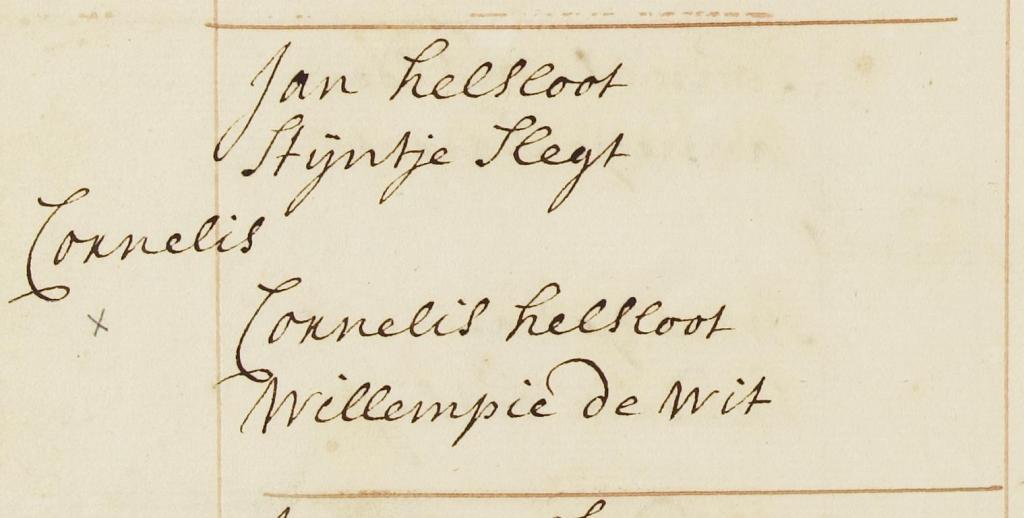 Jan helsloot
Stÿntje Slegt
Cornelis
Cornelis helsloot
Willempie de Wit